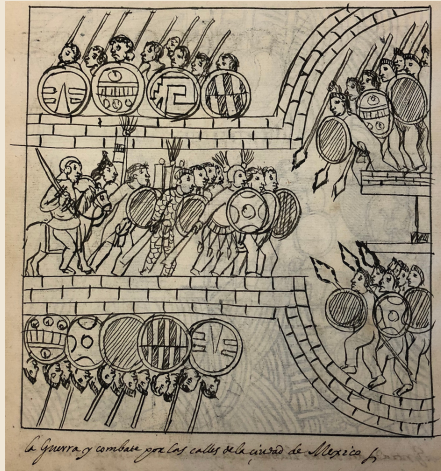 la Guerra y combate por las calles de la ciudad de Mexico